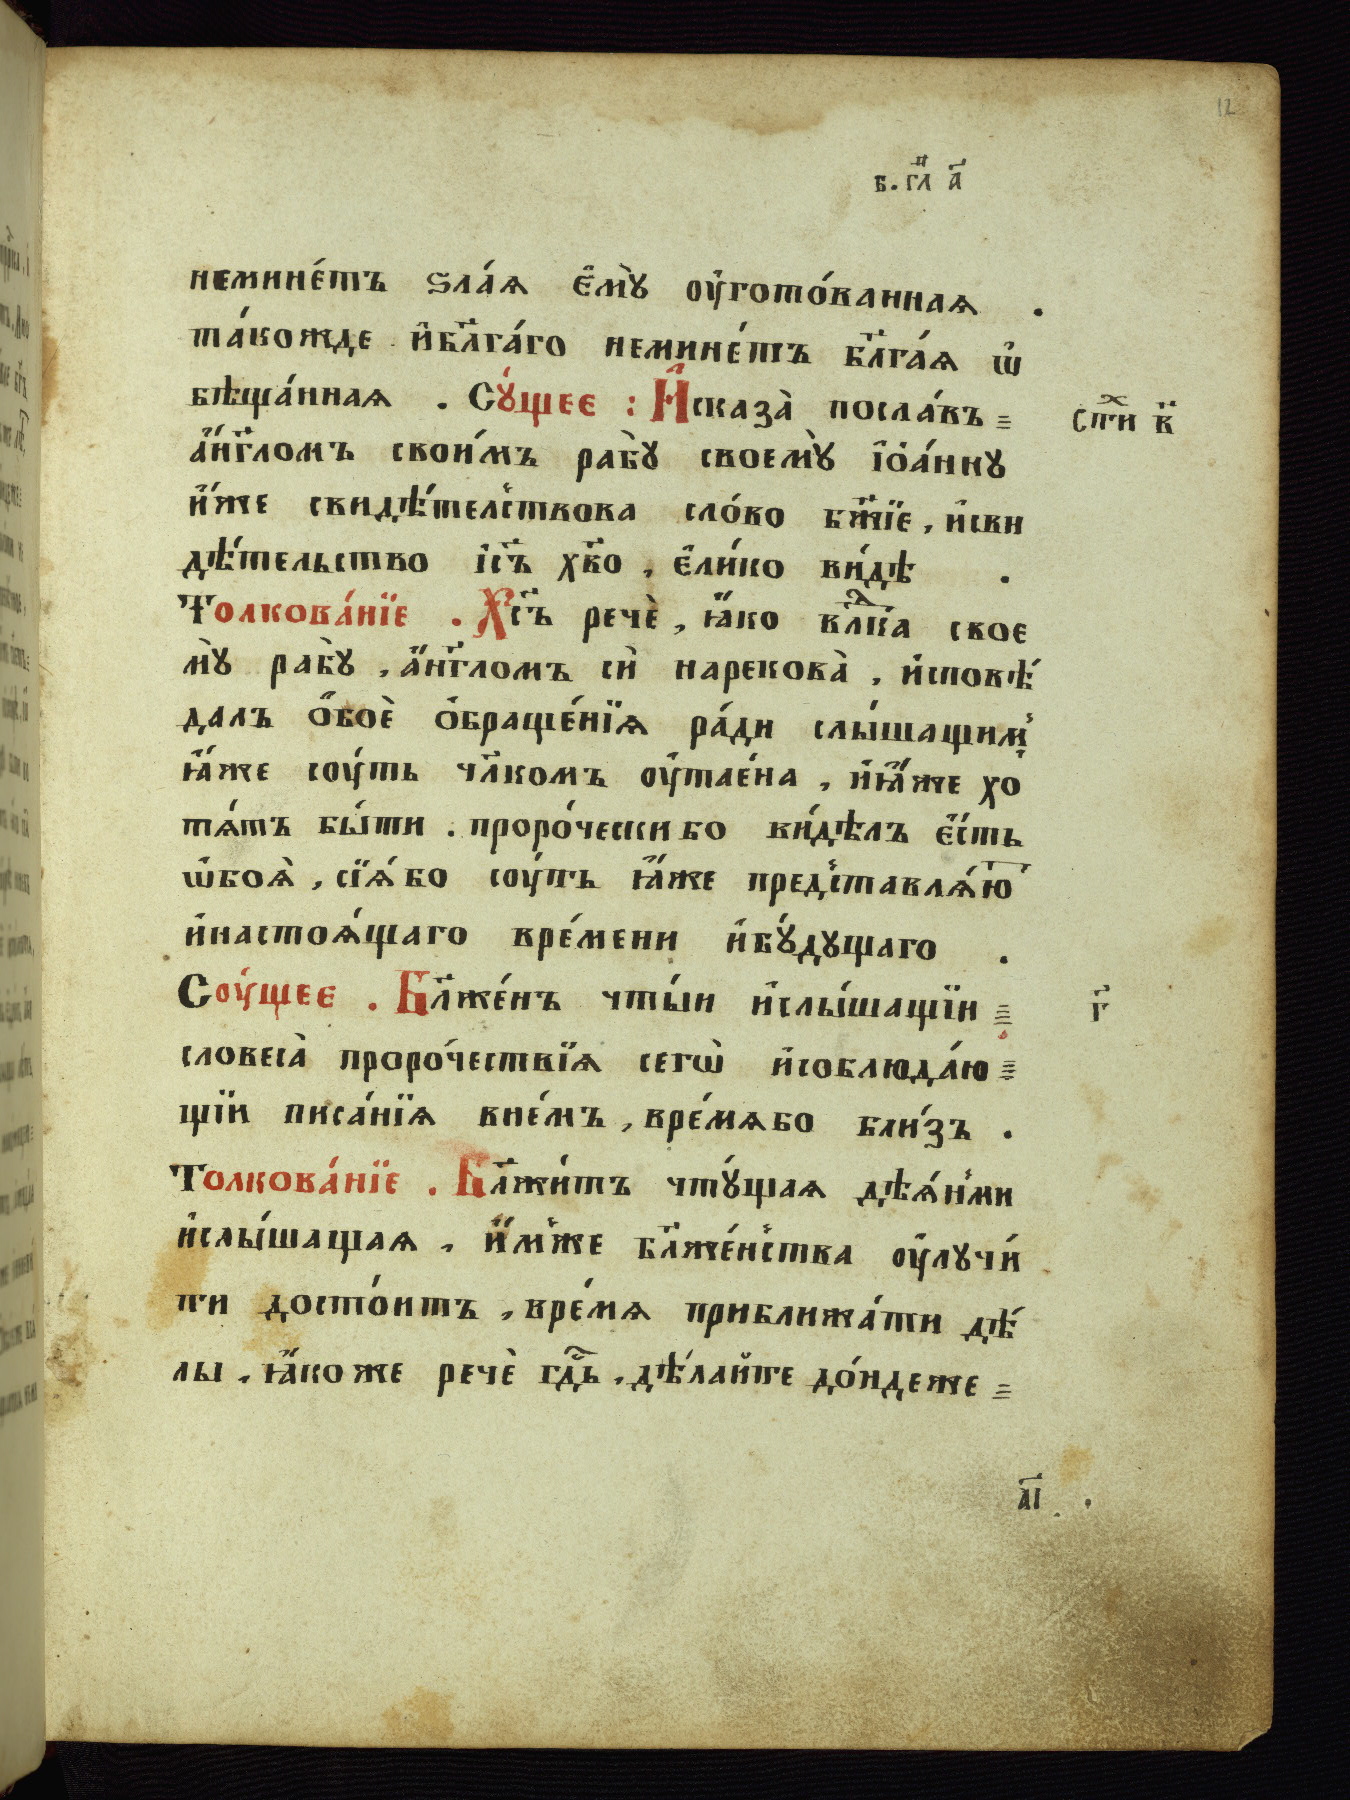 12
б. гл҃п а҃
немине́тъ ѕла́ѧ є҆мꙋ̀ оу҆гото́ваннаѧ .
та́кожде и҆бл҃га́го немине́тъ бл҃га́ѧ ѡ҆
бѣща́ннаѧ . Сꙋ́щее : И҆сказа̀ посла́въ
а҆́нг҃ломъ свои́мъ рабꙋ̀ своемꙋ̀ і҆ѡа́ннꙋ
и҆́же свидѣ́телствова сло́во бж҃їе , и҆сви
дѣ́тельство і҆с҃ъ хв҃о , є҆ли́ко ви́дѣ .
Толкова́нїе . Хс҃ъ речѐ , ꙗ҆́ко влⷣка свое
мꙋ̀ рабꙋ̀ , а҆́нг҃ломъ сѝ нарековà , и҆сповѣ́
далъ о҆́боѐ о҆браще́нїѧ ра́ди слы́шащим
ꙗ҆́же соу́ть чл҃комъ оу҆тае́на , и҆ꙗ҆́же хо
тѧ́тъ бы́ти . проро́чески бо ви́дѣлъ є҆́сть
ѡ҆боѧ̀ , сїѧ́ бо соу́ть ꙗ҆́же представлѧ́ю҃
и҆настоѧ́щаго вре́мени и҆бꙋ́дꙋщаго .
Соу́щее . Бл҃же́нъ чты́и и҆слы́шащїи
словесà проро́чествїѧ сегѡ̀ и҆соблюда́ю
щїи писа́нїѧ вне́мъ , вре́мѧбо бли́зъ .
Толкова́нїе . Бл҃жи́тъ чтꙋ́щаѧ дѣѧ́нми
и҆слы́шащаѧ , и҆́мже бл҃же́нства оу҆лꙋчи́
ти досто́итъ , вре́мѧ приближа́ти дѣ́
лы , ꙗ҆́коже речѐ гдⷭь , дѣ́лайте до́ндеже
стиⷯ в҃
г҃
а҃і .